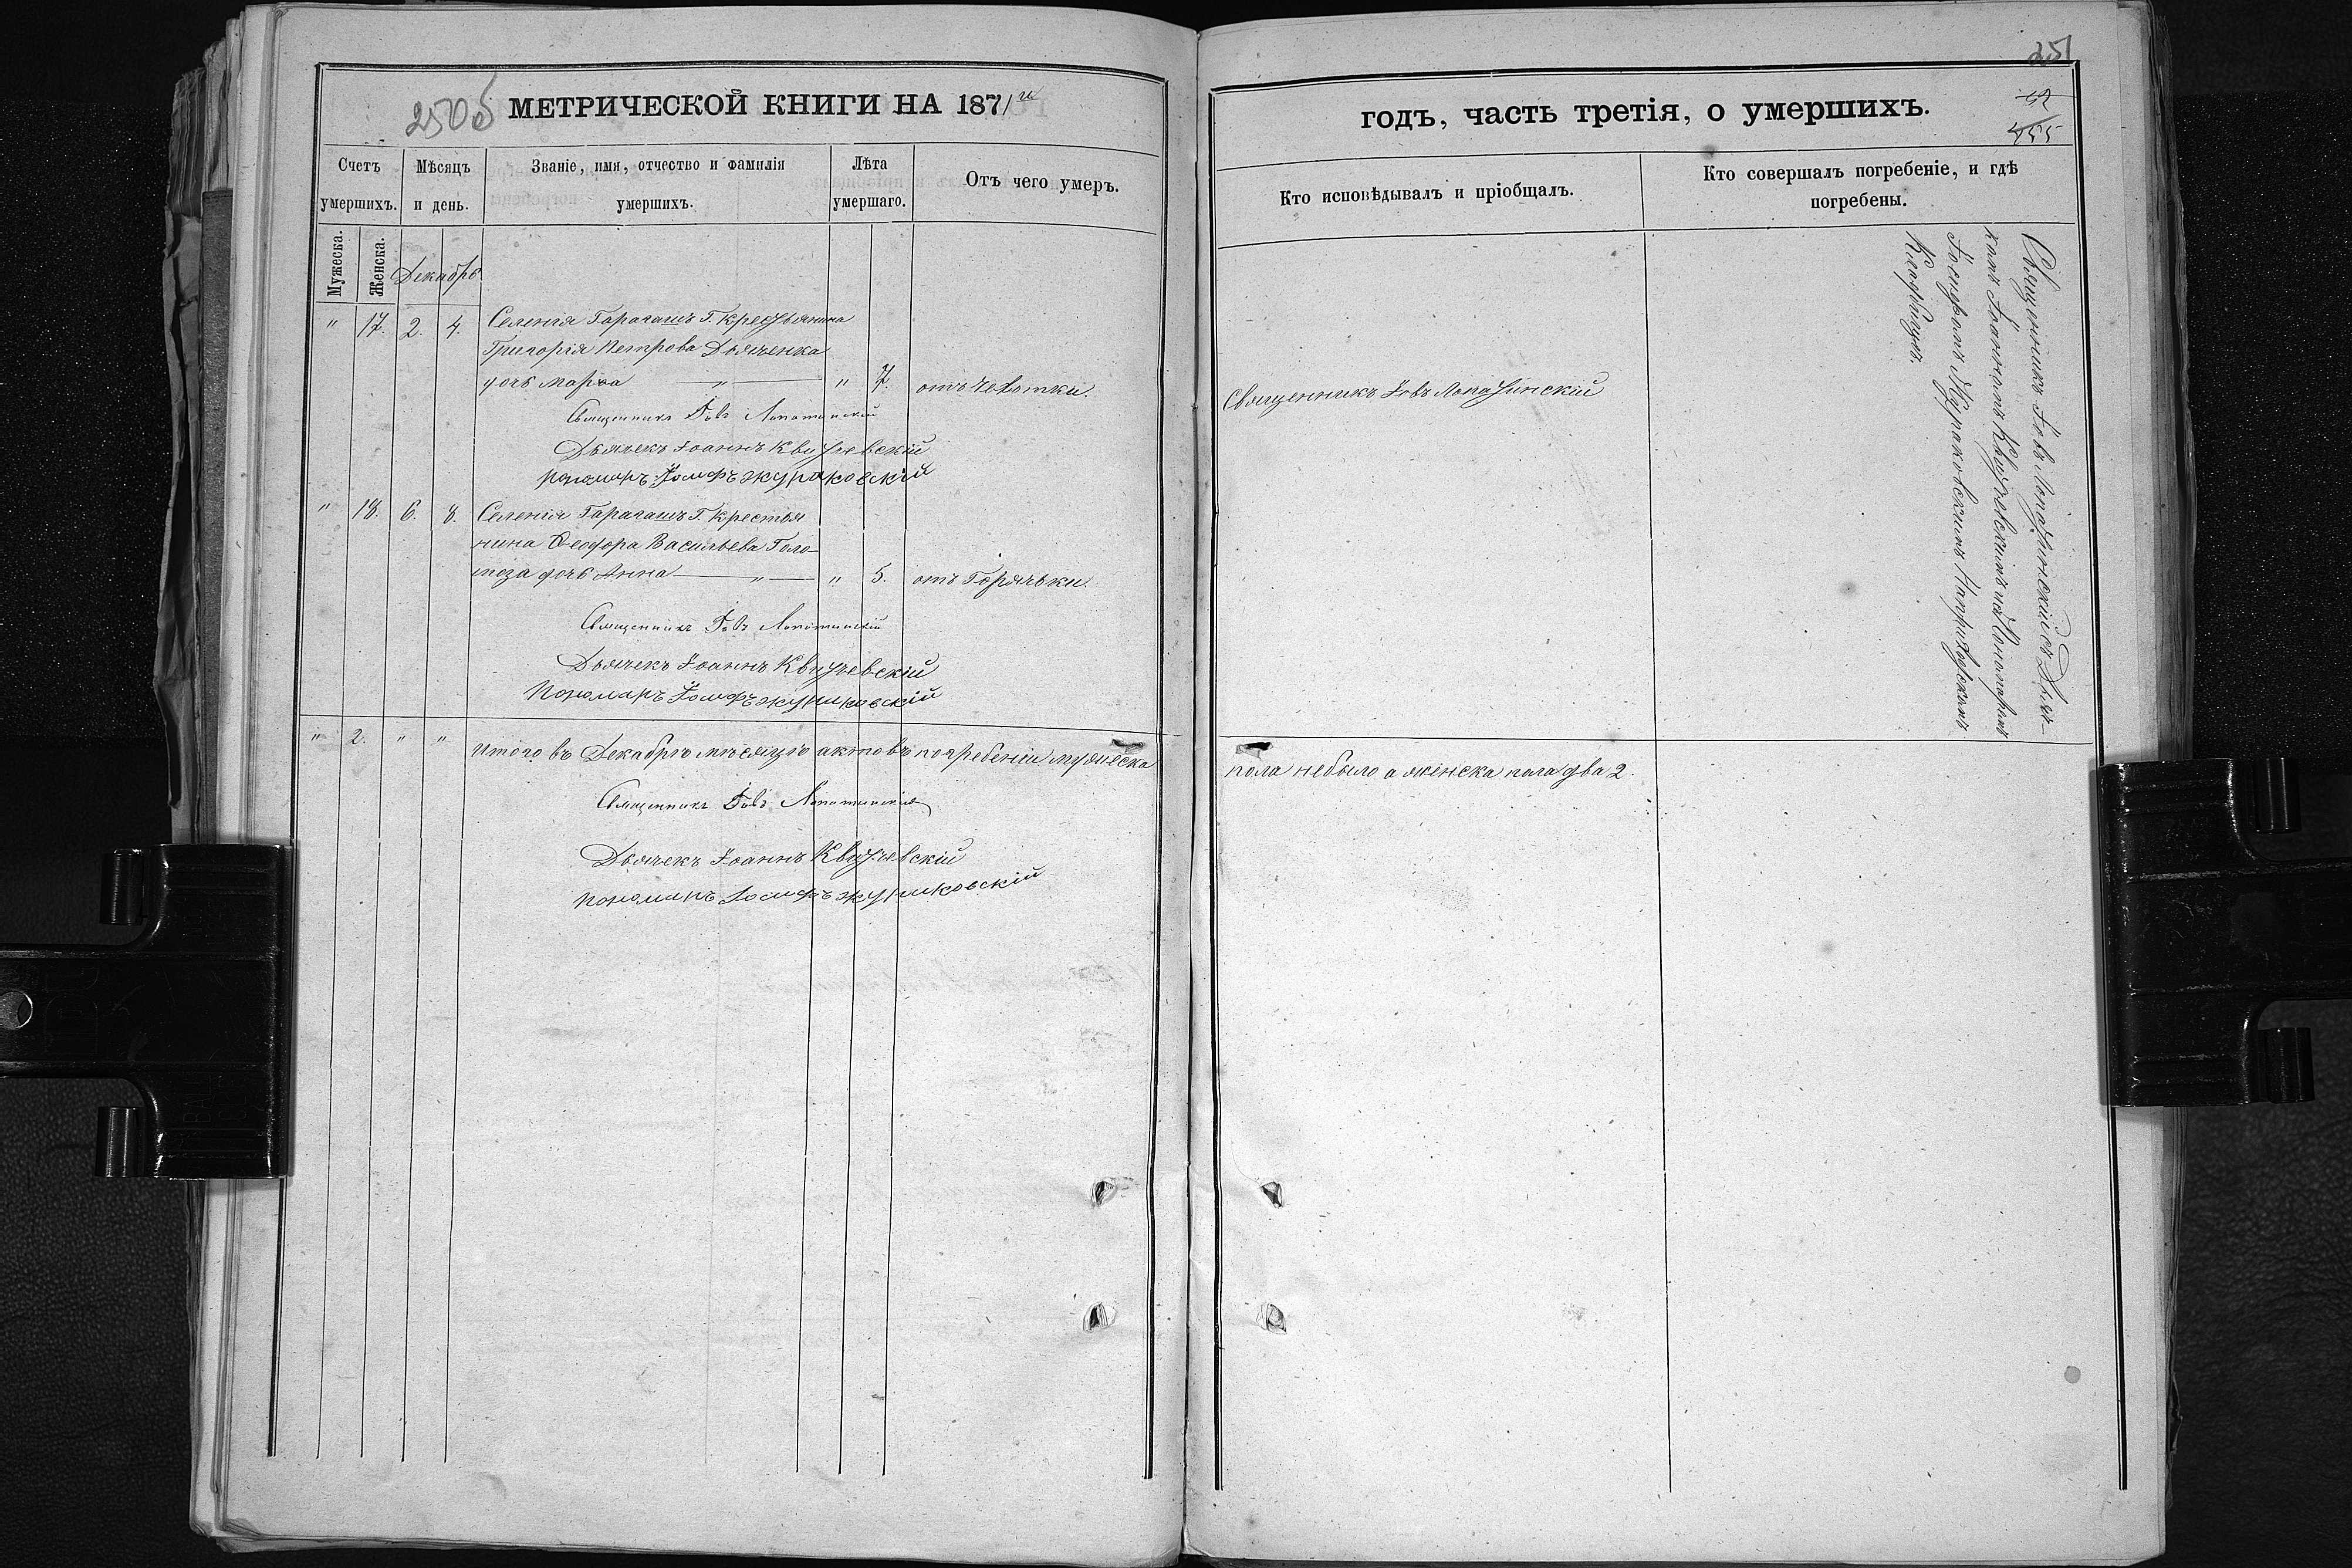 250б МЕТРИЧЕСКОЙ КНИГИ НА 1871й
Счетъ умершихъ.
Мѣсяцъ и день.
Званіе, имя, отчество и фамилія умершихъ.
Лѣта умершаго.
Отъ чего умеръ.
Мужеска.
Женска.
Декабрь.
" 17. 2. 4. Селенія Гарагашъ Г. Крестьянина
Григорія Петрова Дьяченка
дочь Марѳа — " — " 7. отъ чахотки.
Священникъ Іовъ Лопатинскій
Дьячекъ Іоаннъ Квитчевскій
Пономарь Іосифъ Жураковскій
" 18. 6. 8. Селенія Гарагашъ Г. Крестья
нина Ѳеодора Васильева Голо-
тоза дочь Анна — " — " 5. отъ Горячьки.
Священникъ Іовъ Лопатинскій
Дьячекъ Іоаннъ Квитчевскій
Пономарь Іосифъ Жураковскій
" 2. " " Итого въ Декабрѣ мѣсяцѣ актовъ погребеній мужеска
Священникъ Іовъ Лопатинскій
Дьячекъ Іоаннъ Квитчевскій
Пономарь Іосифъ Жураковскій
251
годъ, часть третія, о умершихъ.
42
455
Кто исповѣдывалъ и пріобщалъ.
Кто совершалъ погребеніе, и гдѣ погребены.
Священникъ Іовъ Лопатинскій
Священникъ Іовъ Лопатинскій съ Дьяч-
комъ Іоанномъ Квитчевскимъ и Пономаремъ
Іосифомъ Жураковскимъ На приходскомъ
Кладбищѣ.
пола небыло а женска пола два 2.